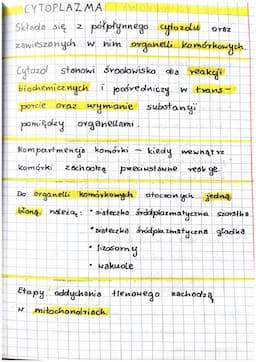 CYTOPLAZMA
Składa się z półpłynnego cytozolu oraz
zawieszonych w nim organelli komórkowych.
Cytozol stanowi środowisko dla reakcji
biochemicznych i pośredniczy w trans-
porcie oraz wymianie substancji
pomiędzy organellami.
Kompartmencja komórki – kiedy wewnątrz
komórki zachodzą przeciwstawne reakcje.
Do organelli komórkowych otoczonych jedną
błoną należą: • siateczka śródplazmatyczna szorstka
• siateczka śródplazmatyczna gładka
• lizosomy
• wakuole
Etapy oddychania tlenowego zachodzą
w mitochondriach.